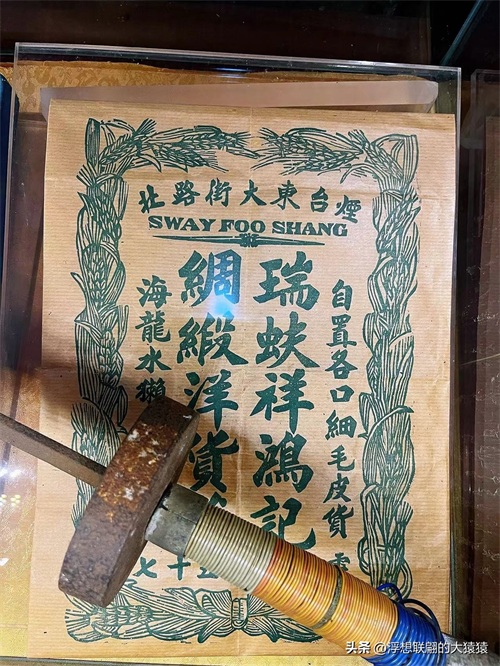 煙台東大街路北
SWAY FOO SHANG
自置各口細毛皮貨
瑞蚨祥鴻記
綢緞洋貨
海龍水獺
五十七
头条 @浮想联翩的大猿猿